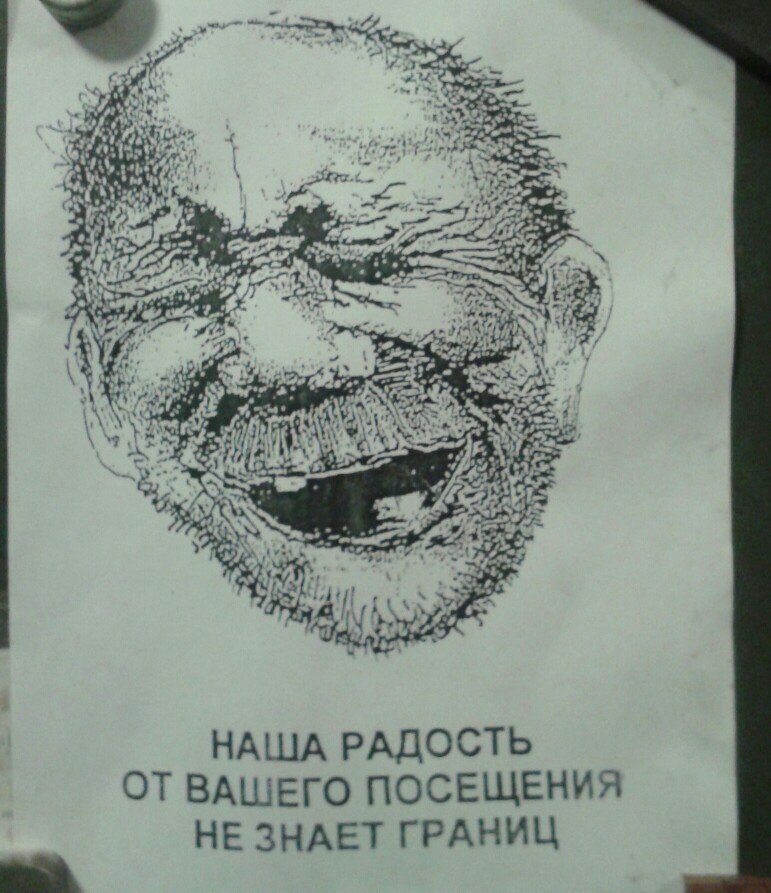 НАША РАДОСТЬ
ОТ ВАШЕГО ПОСЕЩЕНИЯ
НЕ ЗНАЕТ ГРАНИЦ